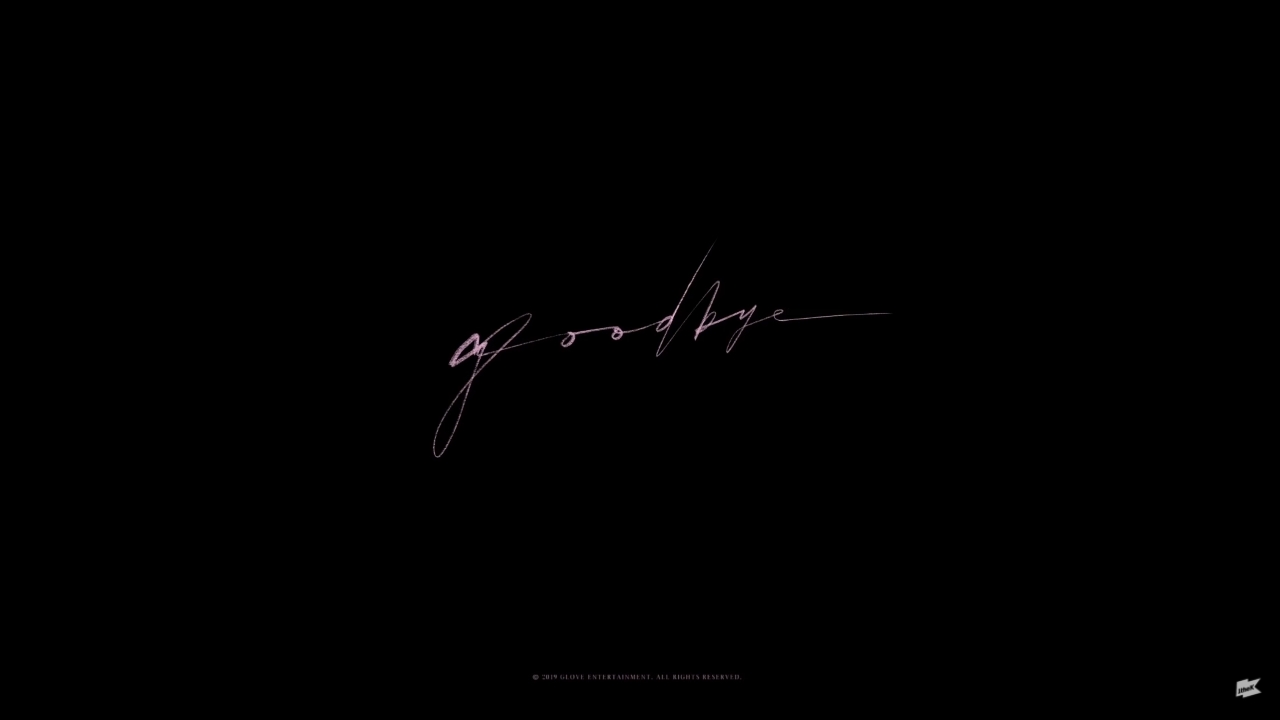 goodbye
© 2019 GLOVE ENTERTAINMENT. ALL RIGHTS RESERVED.
1theK